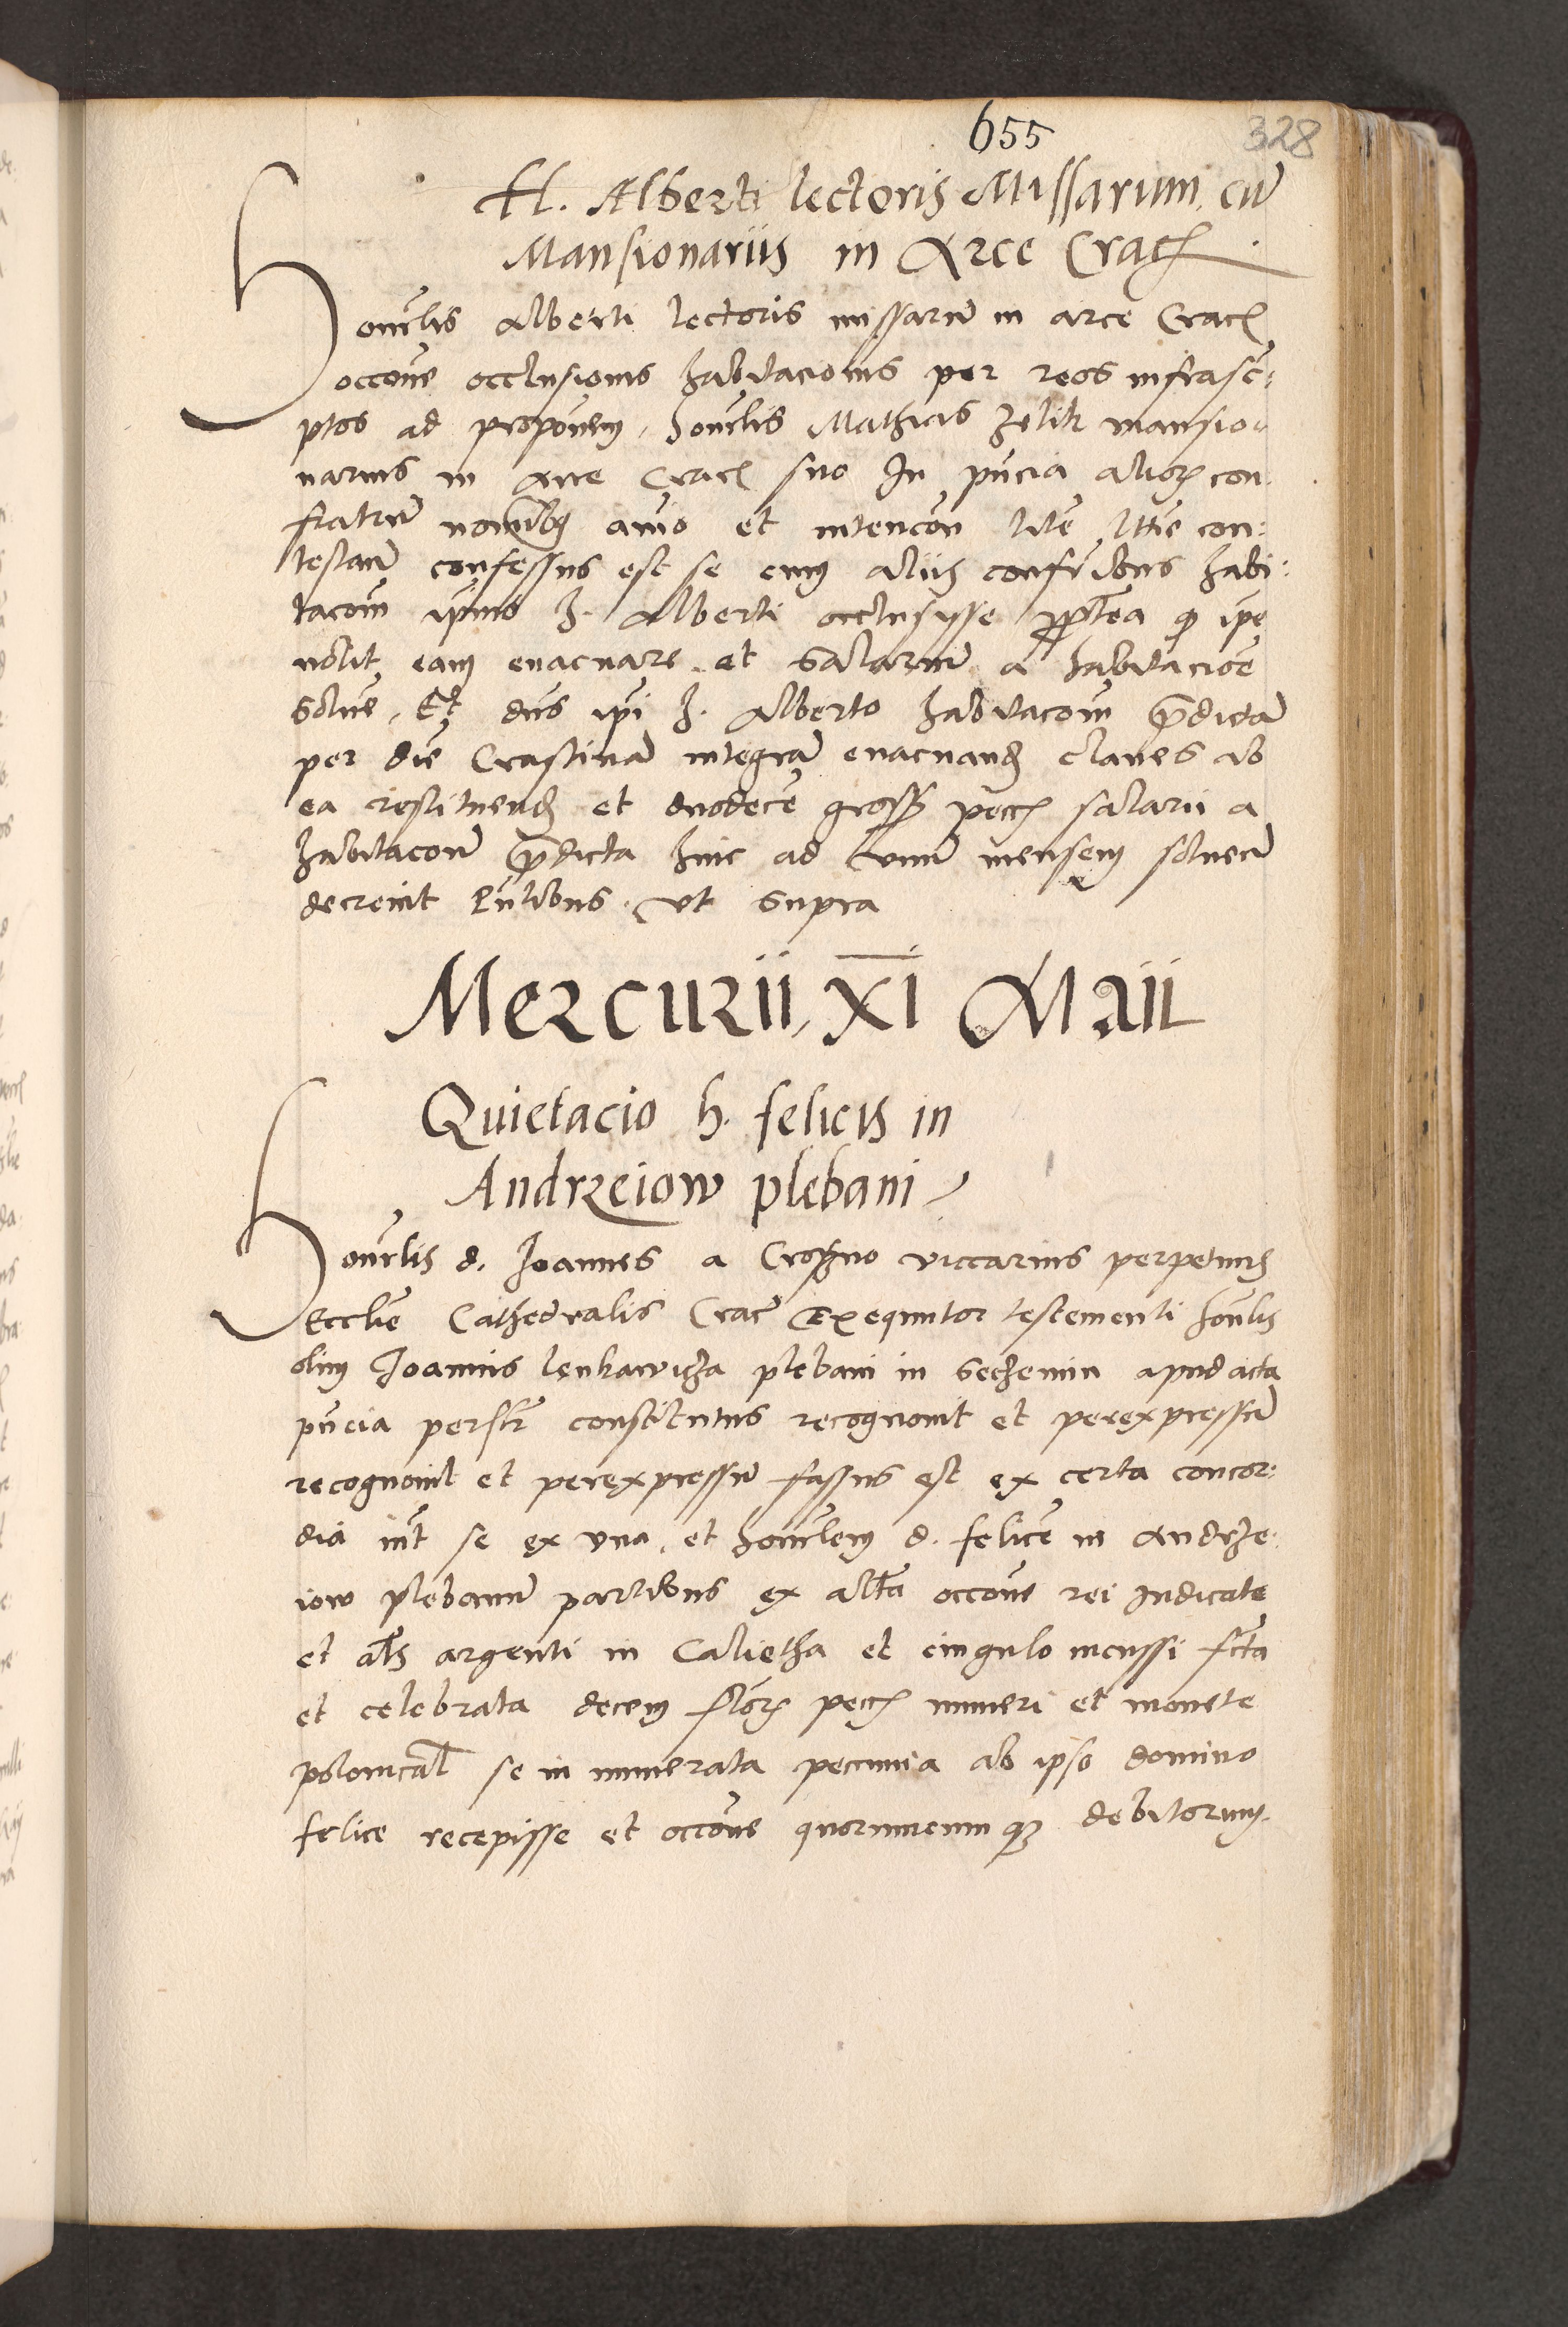 655
328
H. Alberti lectoris Missarum cū
Mansionariis in Arce Crac̄
Honrlis Alberti lectoris missarū in arce Crac̄
occōne occlusionis habitacionis per reos infrasc̄:
ptos ad proponem, honrlis Mathias zelik mansio:
narius in Arce Crac̄ suo In pn̄cia alior̄ con:
fratrū nom̄ibꝫ aīo et intencōn litē lttīe con:
testan̄ confessus est se cum aliis confrībus habi:
tacōm ip̄ius h. Alberti occlusisse ꝓptea ꝙ ipē
nolit eam evacuare et salarium a habitacioē
solvē, Et dn̄s ip̄i h. Alberto habitacōm p̄dictā
per diē Crastinā integrā evacuand̄ claves ab
ea restituend̄ et duodecē gross̄ pecc̄ salarii a
habitacōne p̄dicta hinc ad unū mensem solven̄
decrevit Pn̄tibus ut supra
Mercurii, XI Maii
Quietacio h. felicis in
Andrzeiow plebani
Honrlis d. Joannes a Croszno viccarius perpetuus
Ecclīe Cathedralis Crac̄ Exequutor testementi honrlis
olim Joannis lenkawicza plebani in Seczemin apud acta
pn̄cia persl̄r constitutus recognovit et perexpressū
recognovit et perexpressū fassus est ex certa concor:
dia int̄ se ex una, et honrlem d. felicē in Andrze:
iow plebanū partibus ex altā occōne rei Iudicate
et als̄ argenti in Calietha et cingulo incussi fc̄ta
et celebrata decem flor̄ pecc̄ numeri et monete
polonical̄ se in numerata peccunia ab ipso domino
felice recepisse et occōne quorumcumqꝫ debitorum